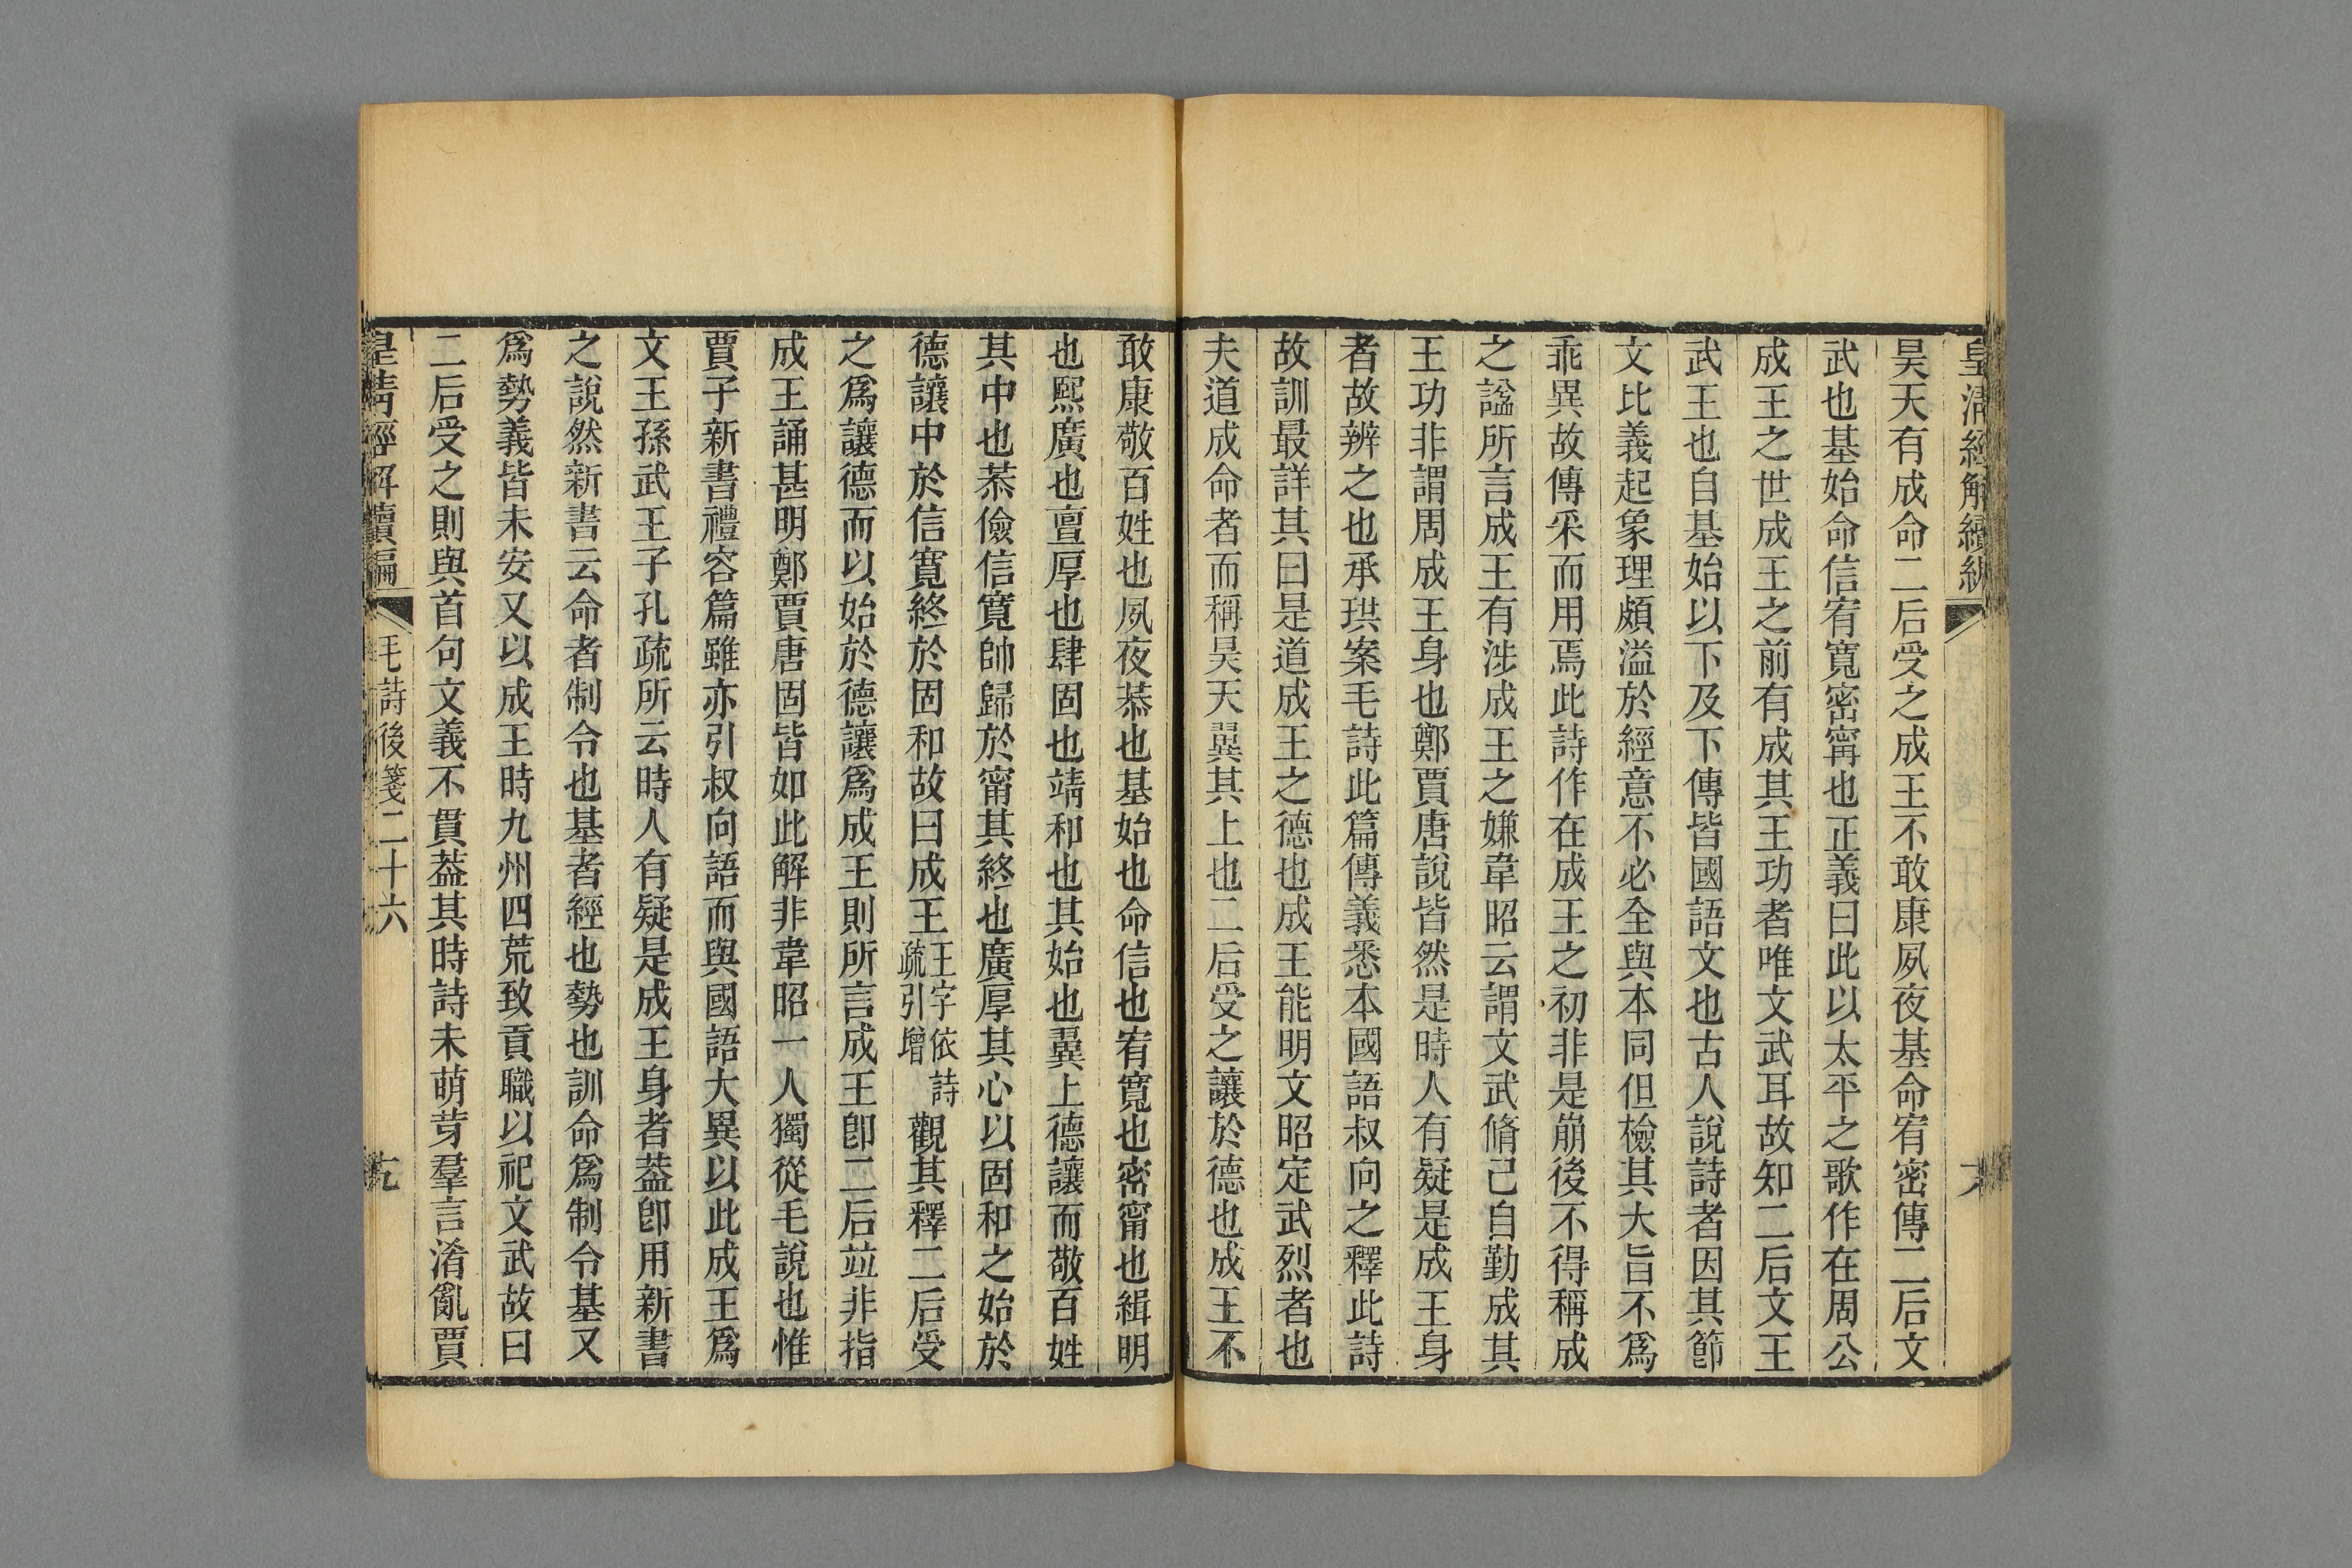 皇清經解續編
昊天有成命二后受之成王不敢康夙夜基命宥密傳二后文
武也基始命信宥寬密甯也正義曰此以太平之歌作在周公
成王之世成王之前有成其王功者唯文武耳故知二后文王
武王也自基始以下及下傳皆國語文也古人說詩者因其節
文比義起象理頗溢於經意不必全與本同但檢其大旨不爲
乖異故傳采而用焉此詩作在成王之初非是崩後不得稱成
之諡所言成王有涉成王之嫌韋昭云謂文武脩己自勤成其
王功非謂周成王身也鄭賈唐說皆然是時人有疑是成王身
者故辨之也承珙案毛詩此篇傳義悉本國語叔向之釋此詩
故訓最詳其曰是道成王之德也成王能明文昭定武烈者也
夫道成命者而稱昊天翼其上也二后受之讓於德也成王不
敢康敬百姓也夙夜恭也基始也命信也宥寬也密甯也緝明
也熙廣也亶厚也肆固也靖和也其始也翼上德讓而敬百姓
其中也恭儉信寬帥歸於甯其終也廣厚其心以固和之始於
德讓中於信寬終於固和故曰成王王字依詩疏引增觀其釋二后受
之爲讓德而以始於德讓爲成王則所言成王卽二后竝非指
成王誦甚明鄭賈唐固皆如此解非韋昭一人獨從毛說也惟
賈子新書禮容篇雖亦引叔向語而與國語大異以此成王爲
文王孫武王子孔疏所云時人有疑是成王身者葢卽用新書
之說然新書云命者制令也基者經也勢也訓命爲制令基又
爲勢義皆未安又以成王時九州四荒致貢職以祀文武故曰
二后受之則與首句文義不貫葢其時詩未萌芽羣言淆亂賈
皇清經解續編
毛詩後箋二十六